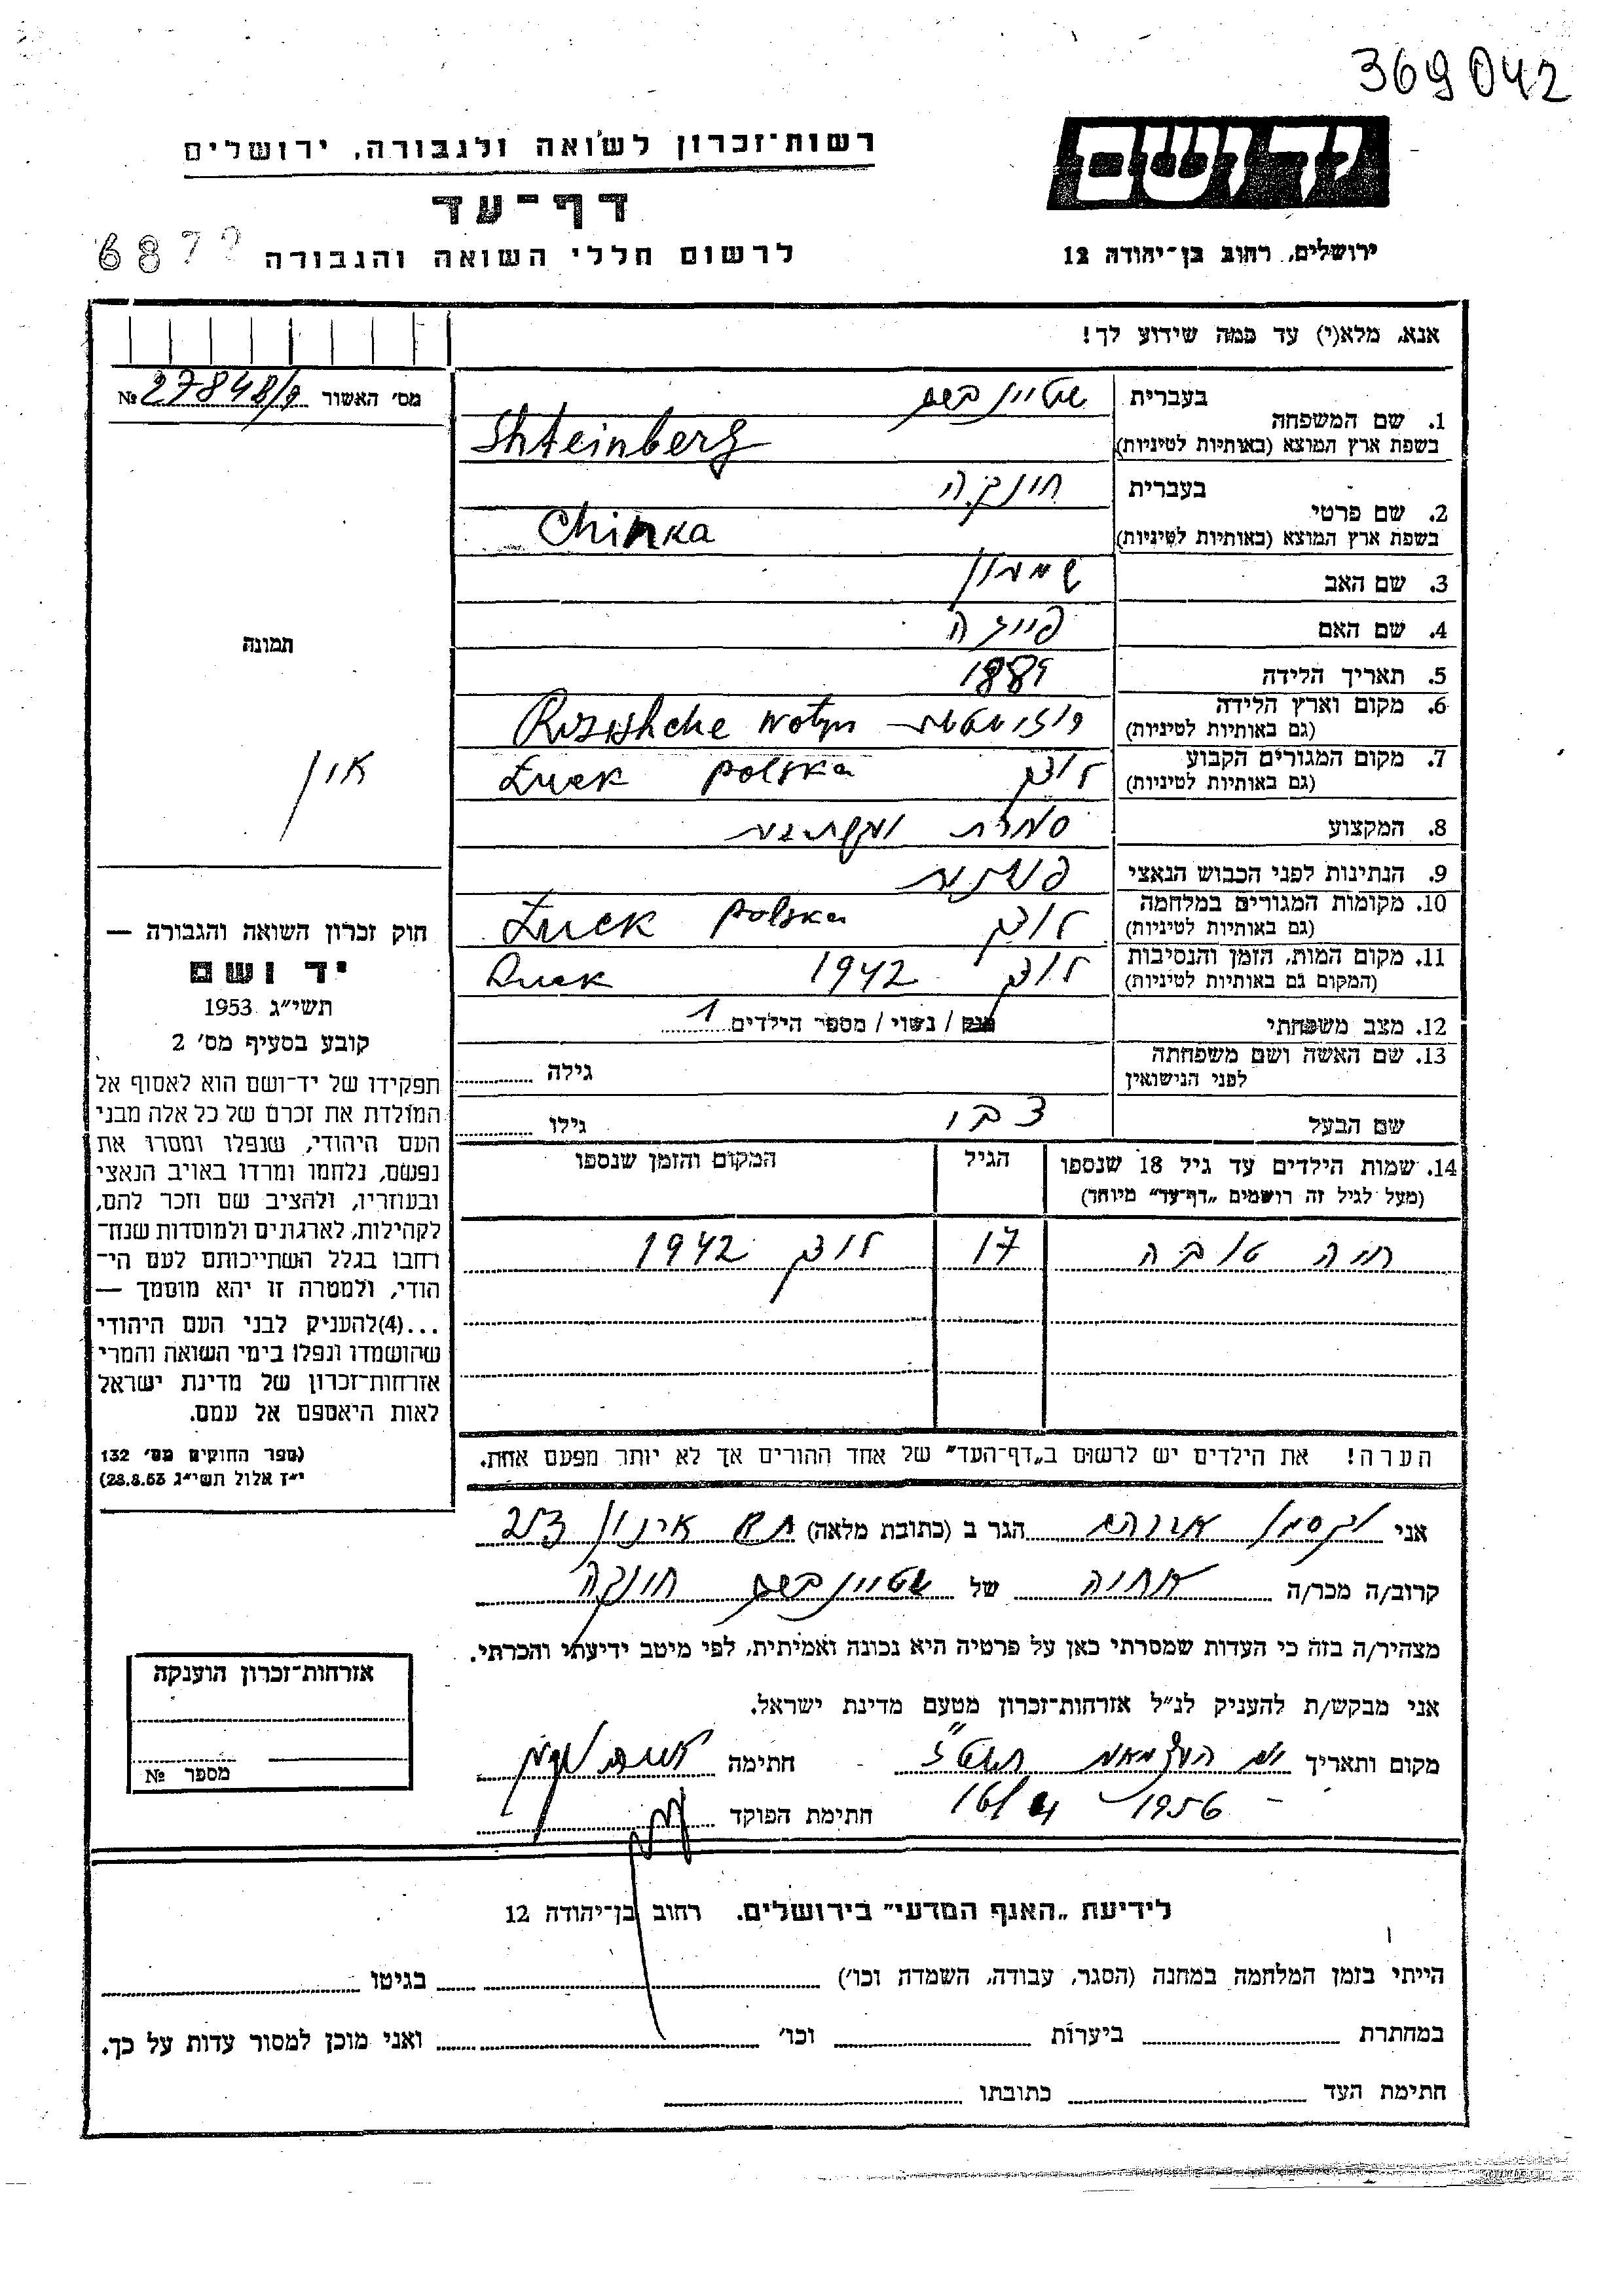 369042
יד ושם
רשות־זכרון לשואה ולגבורה, ירושלים
דף־עד
לרשום חללי השואה והגבורה
687
ירושלים, רחוב בן־יהודה 12
אנא, מלא(י) עד כמה שידוע לך!
מס׳ האשור 27848/9 №
1. שם המשפחה
בעברית שטיינברג
בשפת ארץ המוצא (באותיות לטיניות) Shteinberg
2. שם פרטי
בעברית חינקה
בשפת ארץ המוצא (באותיות לטיניות) Chinka
3. שם האב שמעון
4. שם האם פייגה
5. תאריך הלידה 1889
6. מקום וארץ הלידה Rozishche Wolyn
(גם באותיות לטיניות)
7. מקום המגורים הקבוע לוצק Łuck polska
(גם באותיות לטיניות)
8. המקצוע סוחרת
9. הנתינות לפני הכבוש הנאצי פולנית
10. מקומות המגורים במלחמה לוצק Łuck polska
(גם באותיות לטיניות)
11. מקום המות, הזמן והנסיבות לוצק 1942 Łuck
(המקום גם באותיות לטיניות)
12. מצב משפחתי רווק / נשוי / מספר הילדים 1
13. שם האשה ושם משפחתה
לפני הנישואין
גילה
שם הבעל צבי
גילו
14. שמות הילדים עד גיל 18 שנספו
(מעל לגיל זה רושמים „דף־עד״ מיוחד)
הגיל
המקום והזמן שנספו
חיה טובה 17 לוצק 1942
הערה! את הילדים יש לרשום ב„דף־העד״ של אחד ההורים אך לא יותר מפעם אחת.
תמונה
אין
חוק זכרון השואה והגבורה —
יד ושם
תשי״ג 1953
קובע בסעיף מס׳ 2
תפקידו של יד־ושם הוא לאסוף אל
המולדת את זכרם של כל אלה מבני
העם היהודי, שנפלו ומסרו את
נפשם, נלחמו ומרדו באויב הנאצי
ובעוזריו, ולהציב שם וזכר להם,
לקהילות, לארגונים ולמוסדות שנח־
רחבו בגלל השתייכותם לעם הי־
הודי, ולמטרה זו יהא מוסמך —
...(4)להעניק לבני העם היהודי
שהושמדו ונפלו בימי השואה והמרי
אזרחות־זכרון של מדינת ישראל
לאות היאספם אל עמם.
(ספר החוקים מס׳ 132
י״ז אלול תשי״ג 28.8.53)
אני וקסמן הגר ב (כתובת מלאה)
קרוב/ה מכר/ה אחיה של שטיינברג חינקה
מצהיר/ה בזה כי העדות שמסרתי כאן על פרטיה היא נכונה ואמיתית, לפי מיטב ידיעתי והכרתי.
אני מבקש/ת להעניק לנ״ל אזרחות־זכרון מטעם מדינת ישראל.
מקום ותאריך יום העצמאות תשט״ז חתימה
16/4 1956
חתימת הפוקד
אזרחות־זכרון הוענקה
מספר №
לידיעת „האגף המדעי״ בירושלים. רחוב בן־יהודה 12
הייתי בזמן המלחמה במחנה (הסגר, עבודה, השמדה וכו׳) בגיטו
במחתרת ביערות וכו׳ ואני מוכן למסור עדות על כך.
חתימת העד כתובתו